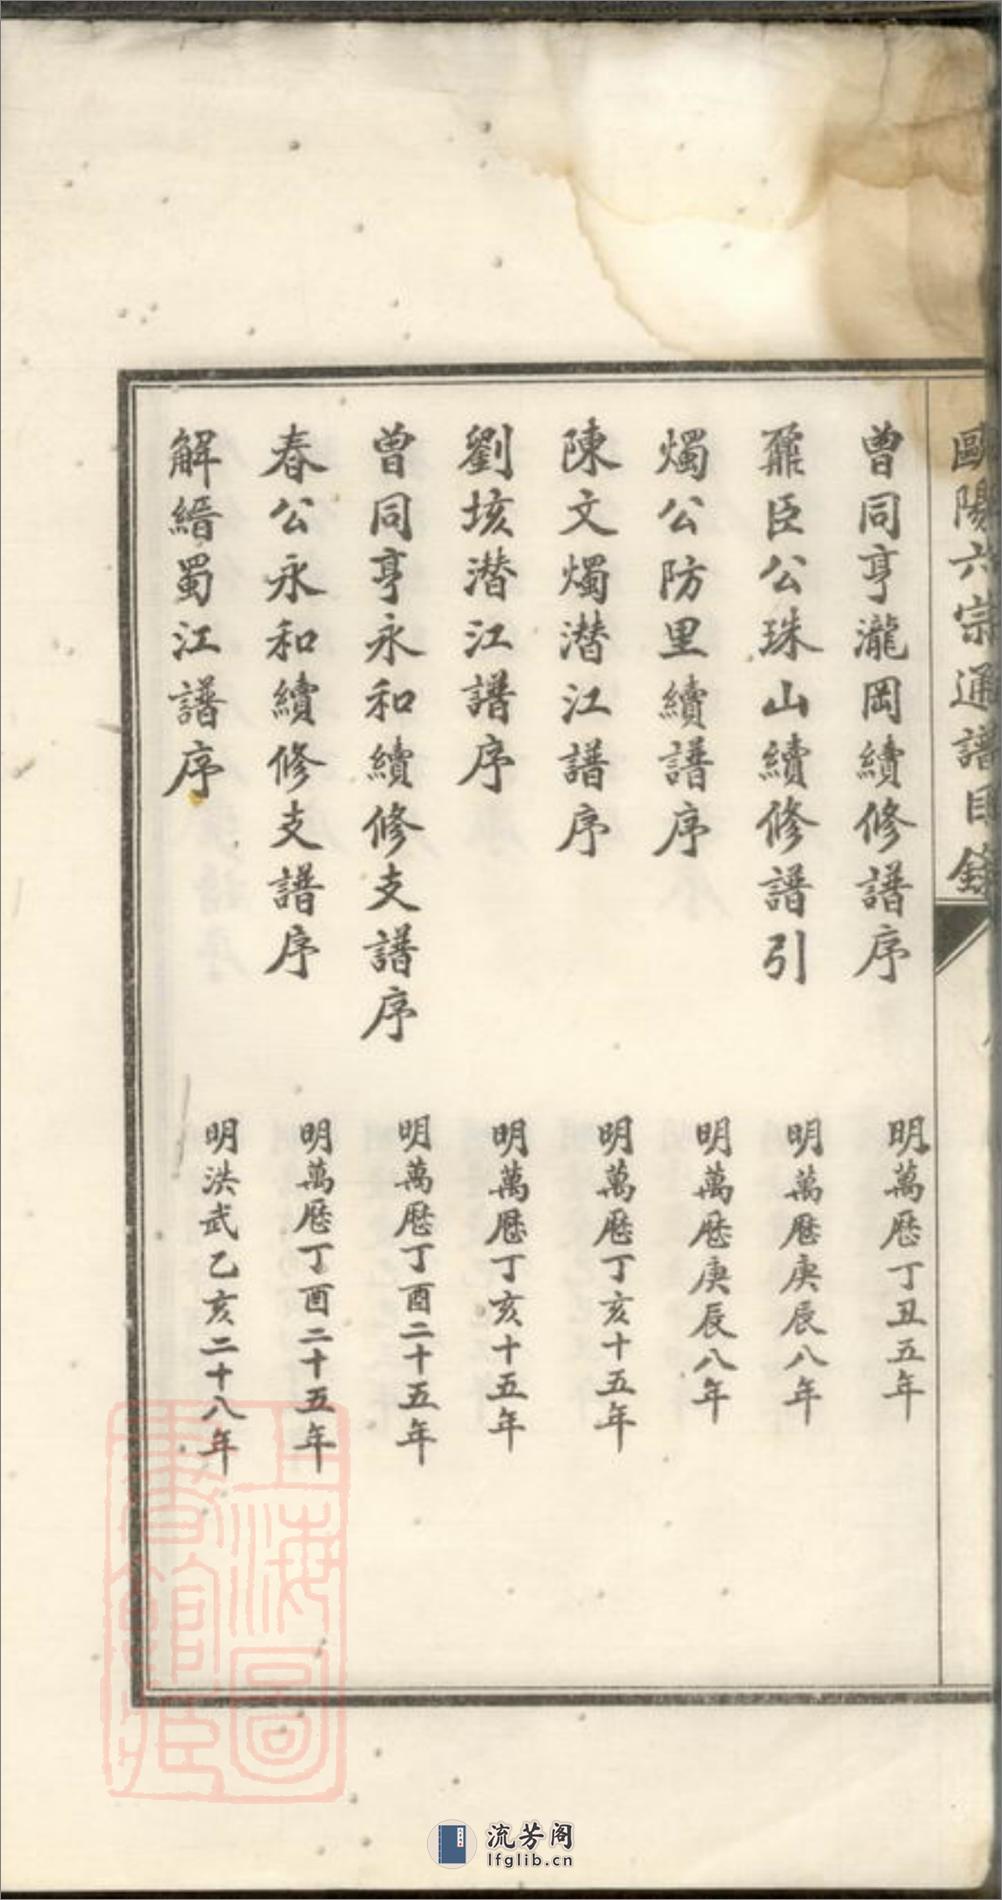 歐陽六宗通譜目錄
曾同亨瀧岡續修譜序 明萬歷丁丑五年
鼐臣公珠山續修譜引 明萬歷庚辰八年
燭公防里續譜序 明萬歷庚辰八年
陳文燭潜江譜序 明萬歷丁亥十五年
劉垓潜江譜序 明萬歷丁亥十五年
曾同亨永和續修支譜序 明萬歷丁酉二十五年
春公永和續修支譜序 明萬歷丁酉二十五年
解縉蜀江譜序 明洪武乙亥二十八年
上海圖
書館藏
流芳阁
lfglib.cn